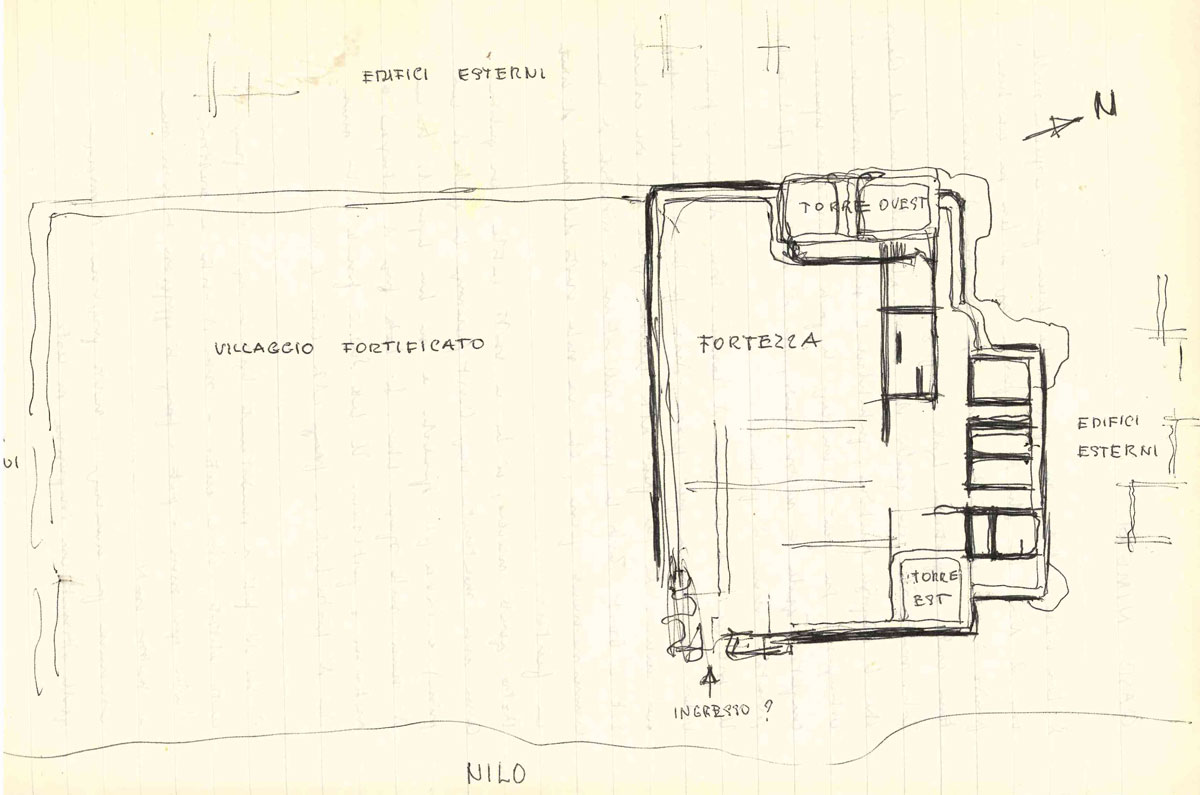 EDIFICI ESTERNI
N
TORRE OVEST
VILLAGGIO FORTIFICATO
FORTEZZA
EDIFICI
ESTERNI
UI
TORRE
EST
INGRESSO ?
NILO